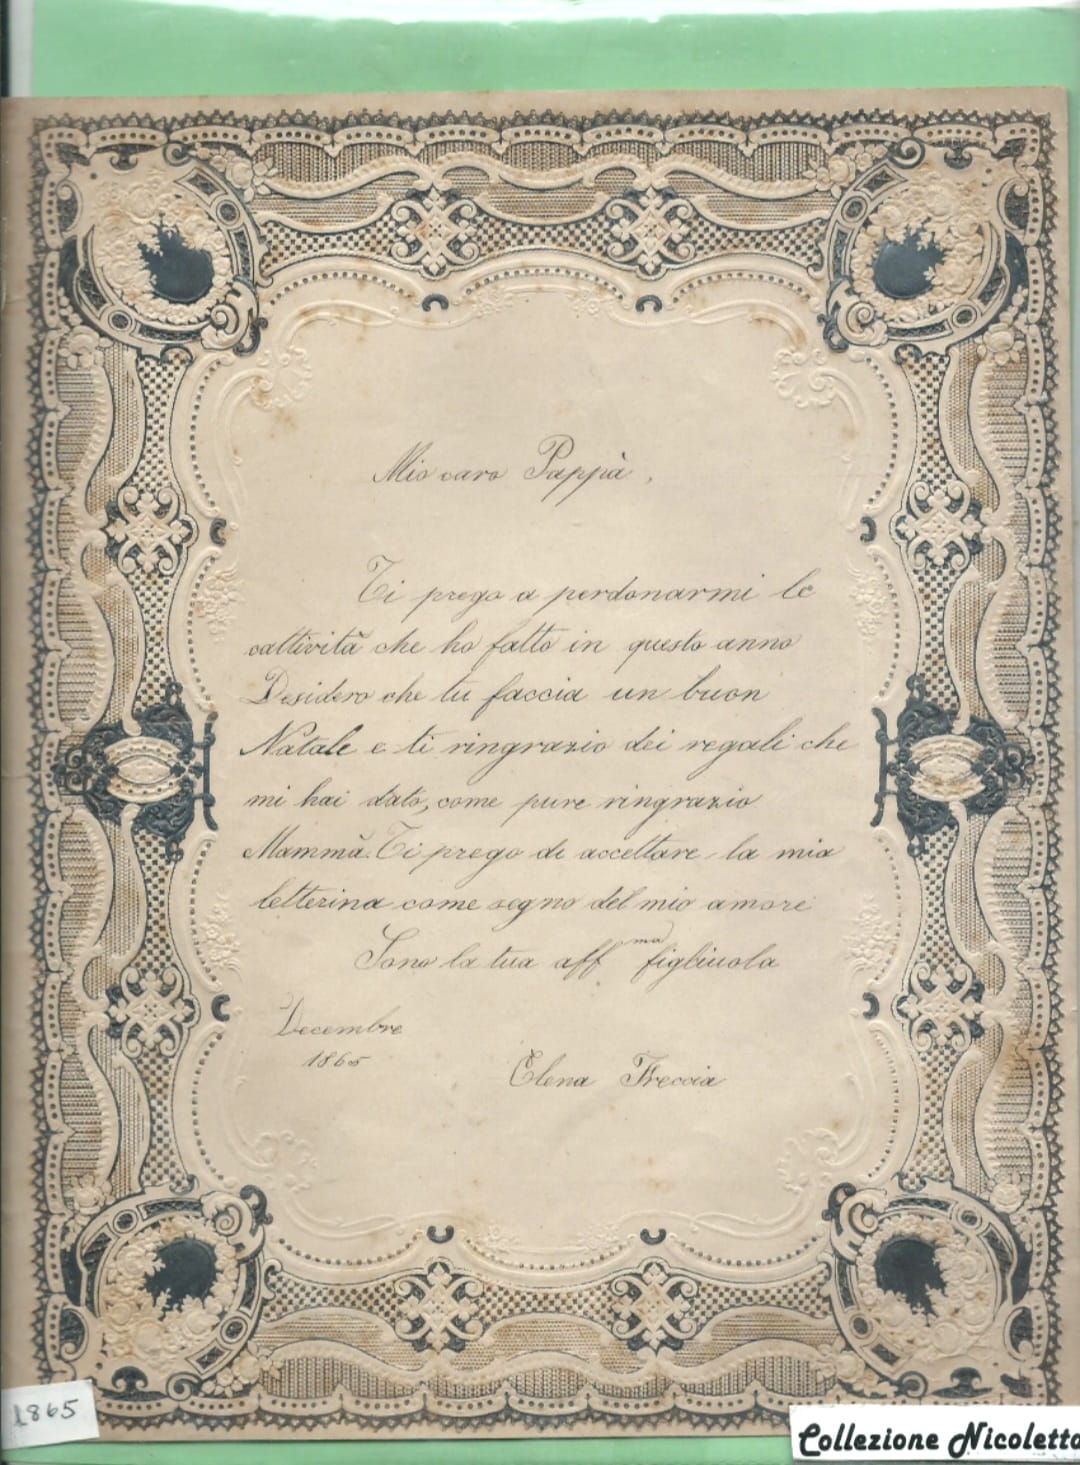 Mio caro Pappà,
Ti prego a perdonarmi le
cattività che ho fatto in questo anno
Desidero che tu faccia un buon
Natale e ti ringrazio dei regali che
mi hai dato, come pure ringrazio
Mammà. Ti prego di accettare la mia
letterina come segno del mio amore
Sono la tua aff.ma figliuola
Decembre
1865
Elena Freccia
1865
Collezione Nicoletto